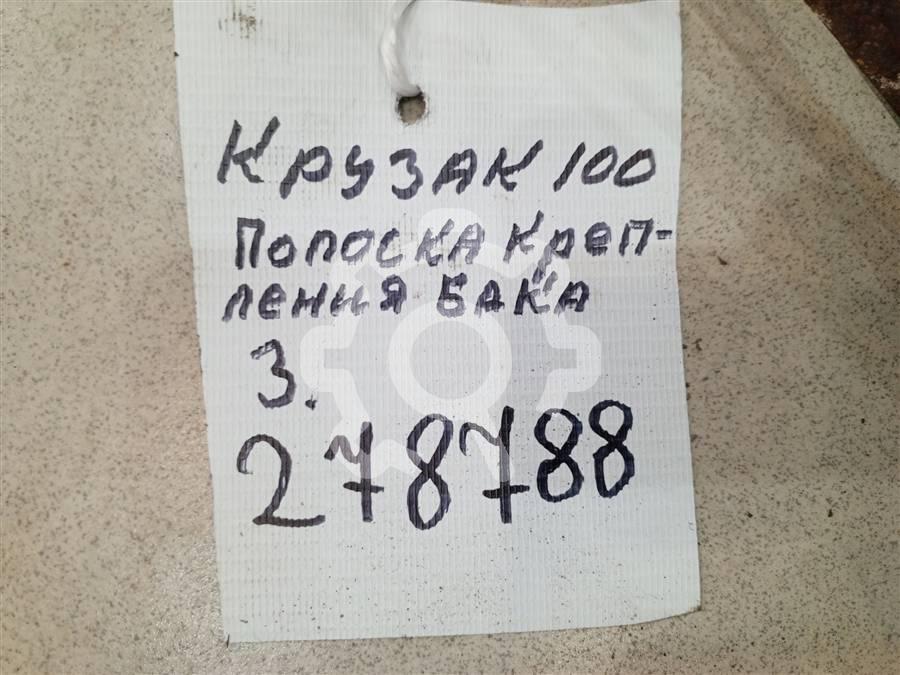 Крузак 100
Полоска креп-
ления бака
З.
278788